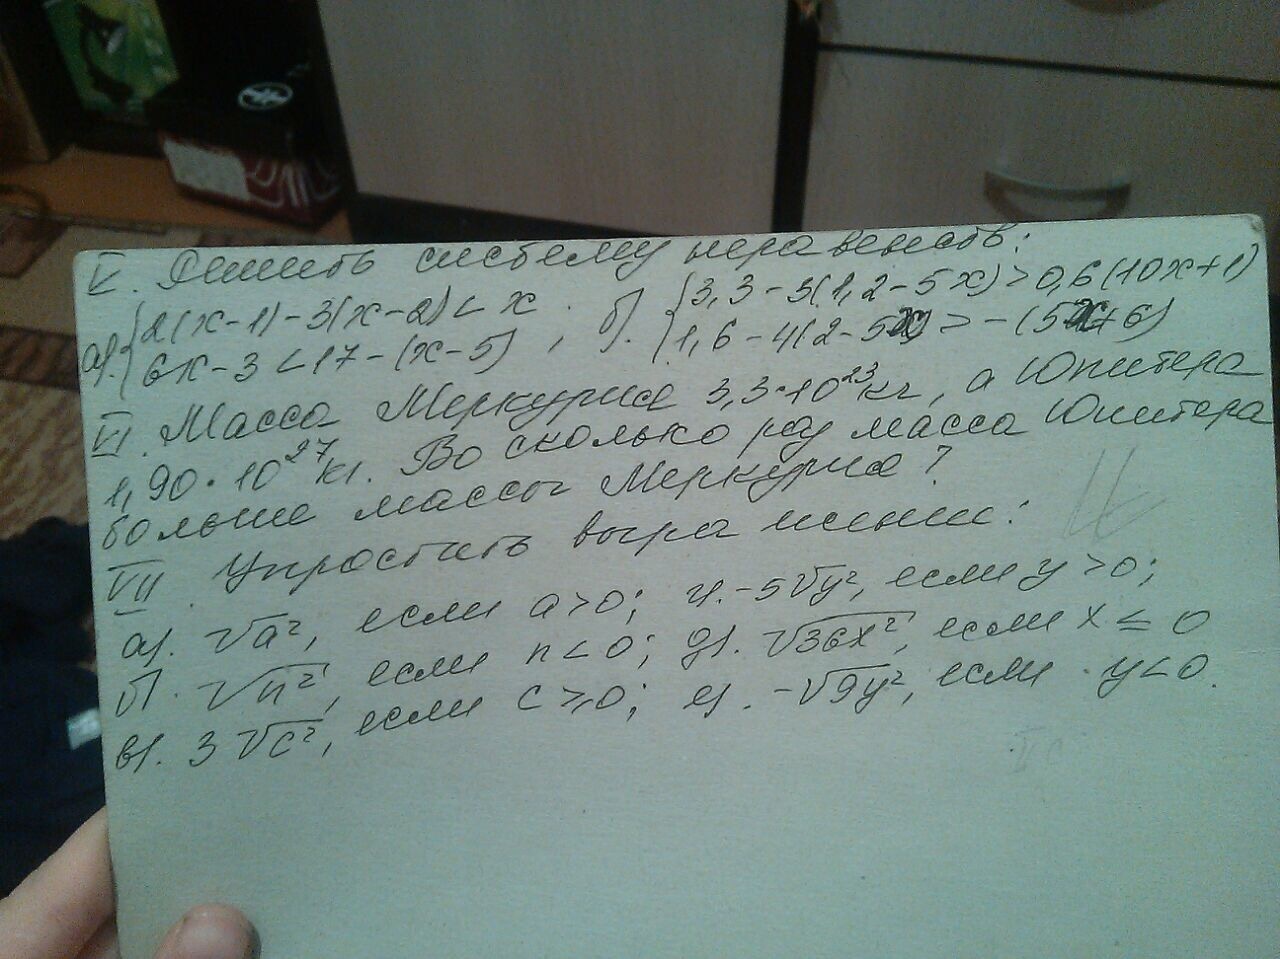 V. Решить систему неравенств:
а). { 2(x-1)-3(x-2)<x ; б). { 3,3-3(1,2-5x)>0,6(10x+1)
6x-3<17-(x-5) , 1,6-4(2-5x)>-(5x+6)
VI. Масса Меркурия 3,3·10²³кг, а Юпитера
1,90·10²⁷кг. Во сколько раз масса Юпитера
больше массы Меркурия?
VII. Упростить выражение:
а). √a², если a>0; г). -5√y², если y>0;
б). √n², если n<0; д). √36x², если x≤0
в). 3√c², если c≥0; е). -√9y², если y<0.